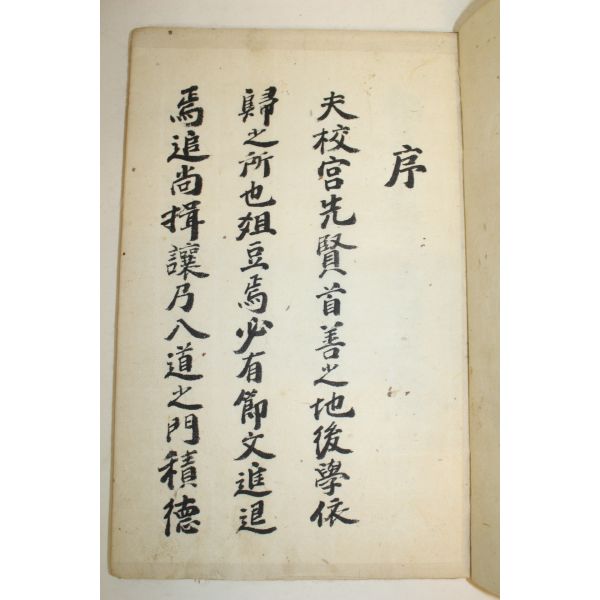 序
夫校宮先賢首善之地後學依
歸之所也俎豆焉必有節文進退
焉追尚揖讓乃入道之門積德